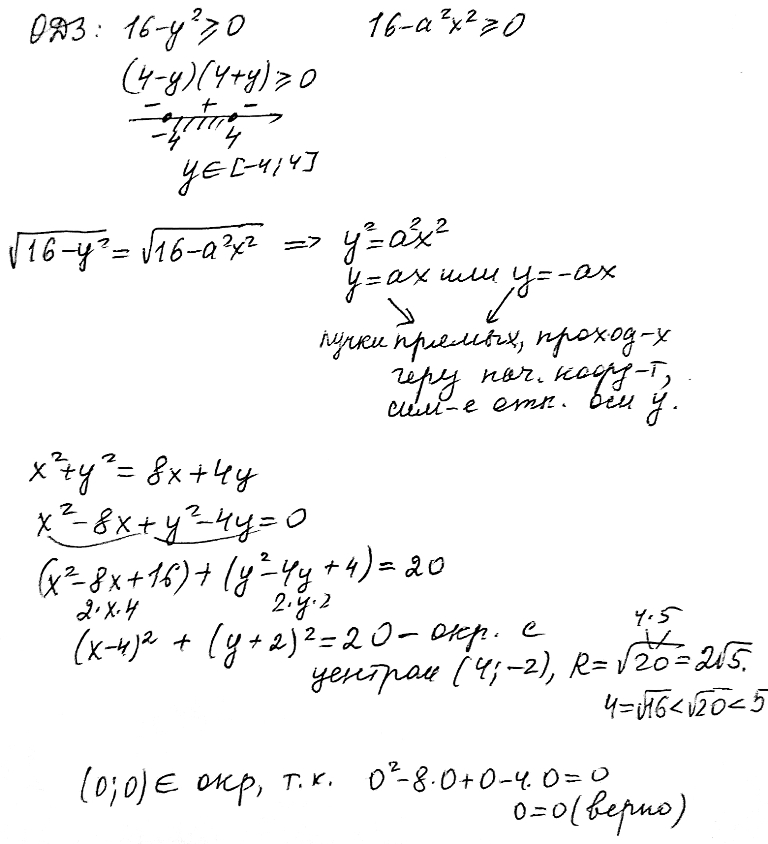 ОДЗ: 16-y²≥0 16-a²x²≥0
(4-y)(4+y)≥0
- + -
-4 4
y∈[-4;4]
√16-y² = √16-a²x² => y²=a²x²
y=ax или y=-ax
пучки прямых, проход-х
через нач. коорд-т,
сим-е отн. оси y.
x²+y²= 8x+4y
x²-8x+y²-4y=0
(x²-8x+16)+(y²-4y+4)=20
2·x·4 2·y·2
4·5
(x-4)² + (y+2)²=20 – окр. с
центром (4;-2), R=√20=2√5.
4=√16<√20<5
(0;0)∈ окр, т.к. 0²-8·0+0-4·0=0
0=0 (верно)